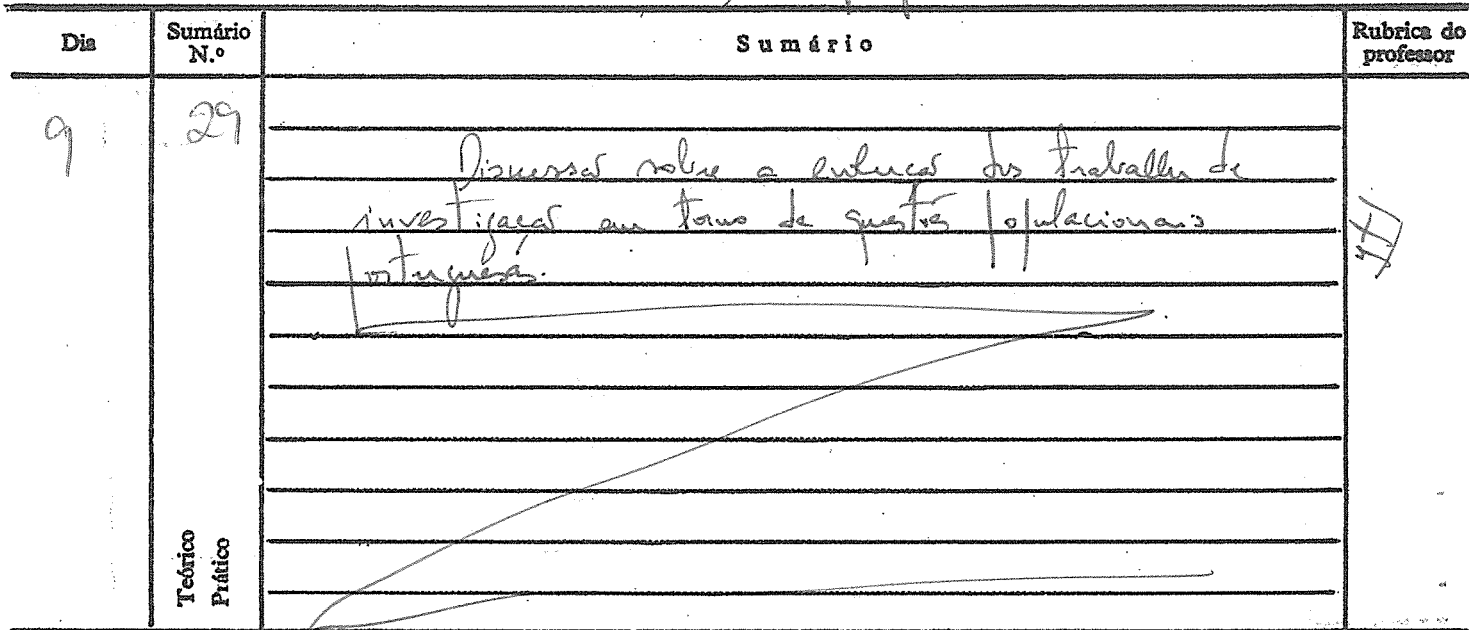 Dia
Sumário N.º
Sumário
Rubrica do professor
9
29
Discussão sobre a evolução dos trabalhos de
investigação em torno de questões populacionais
portuguesas.
Teórico
Prático